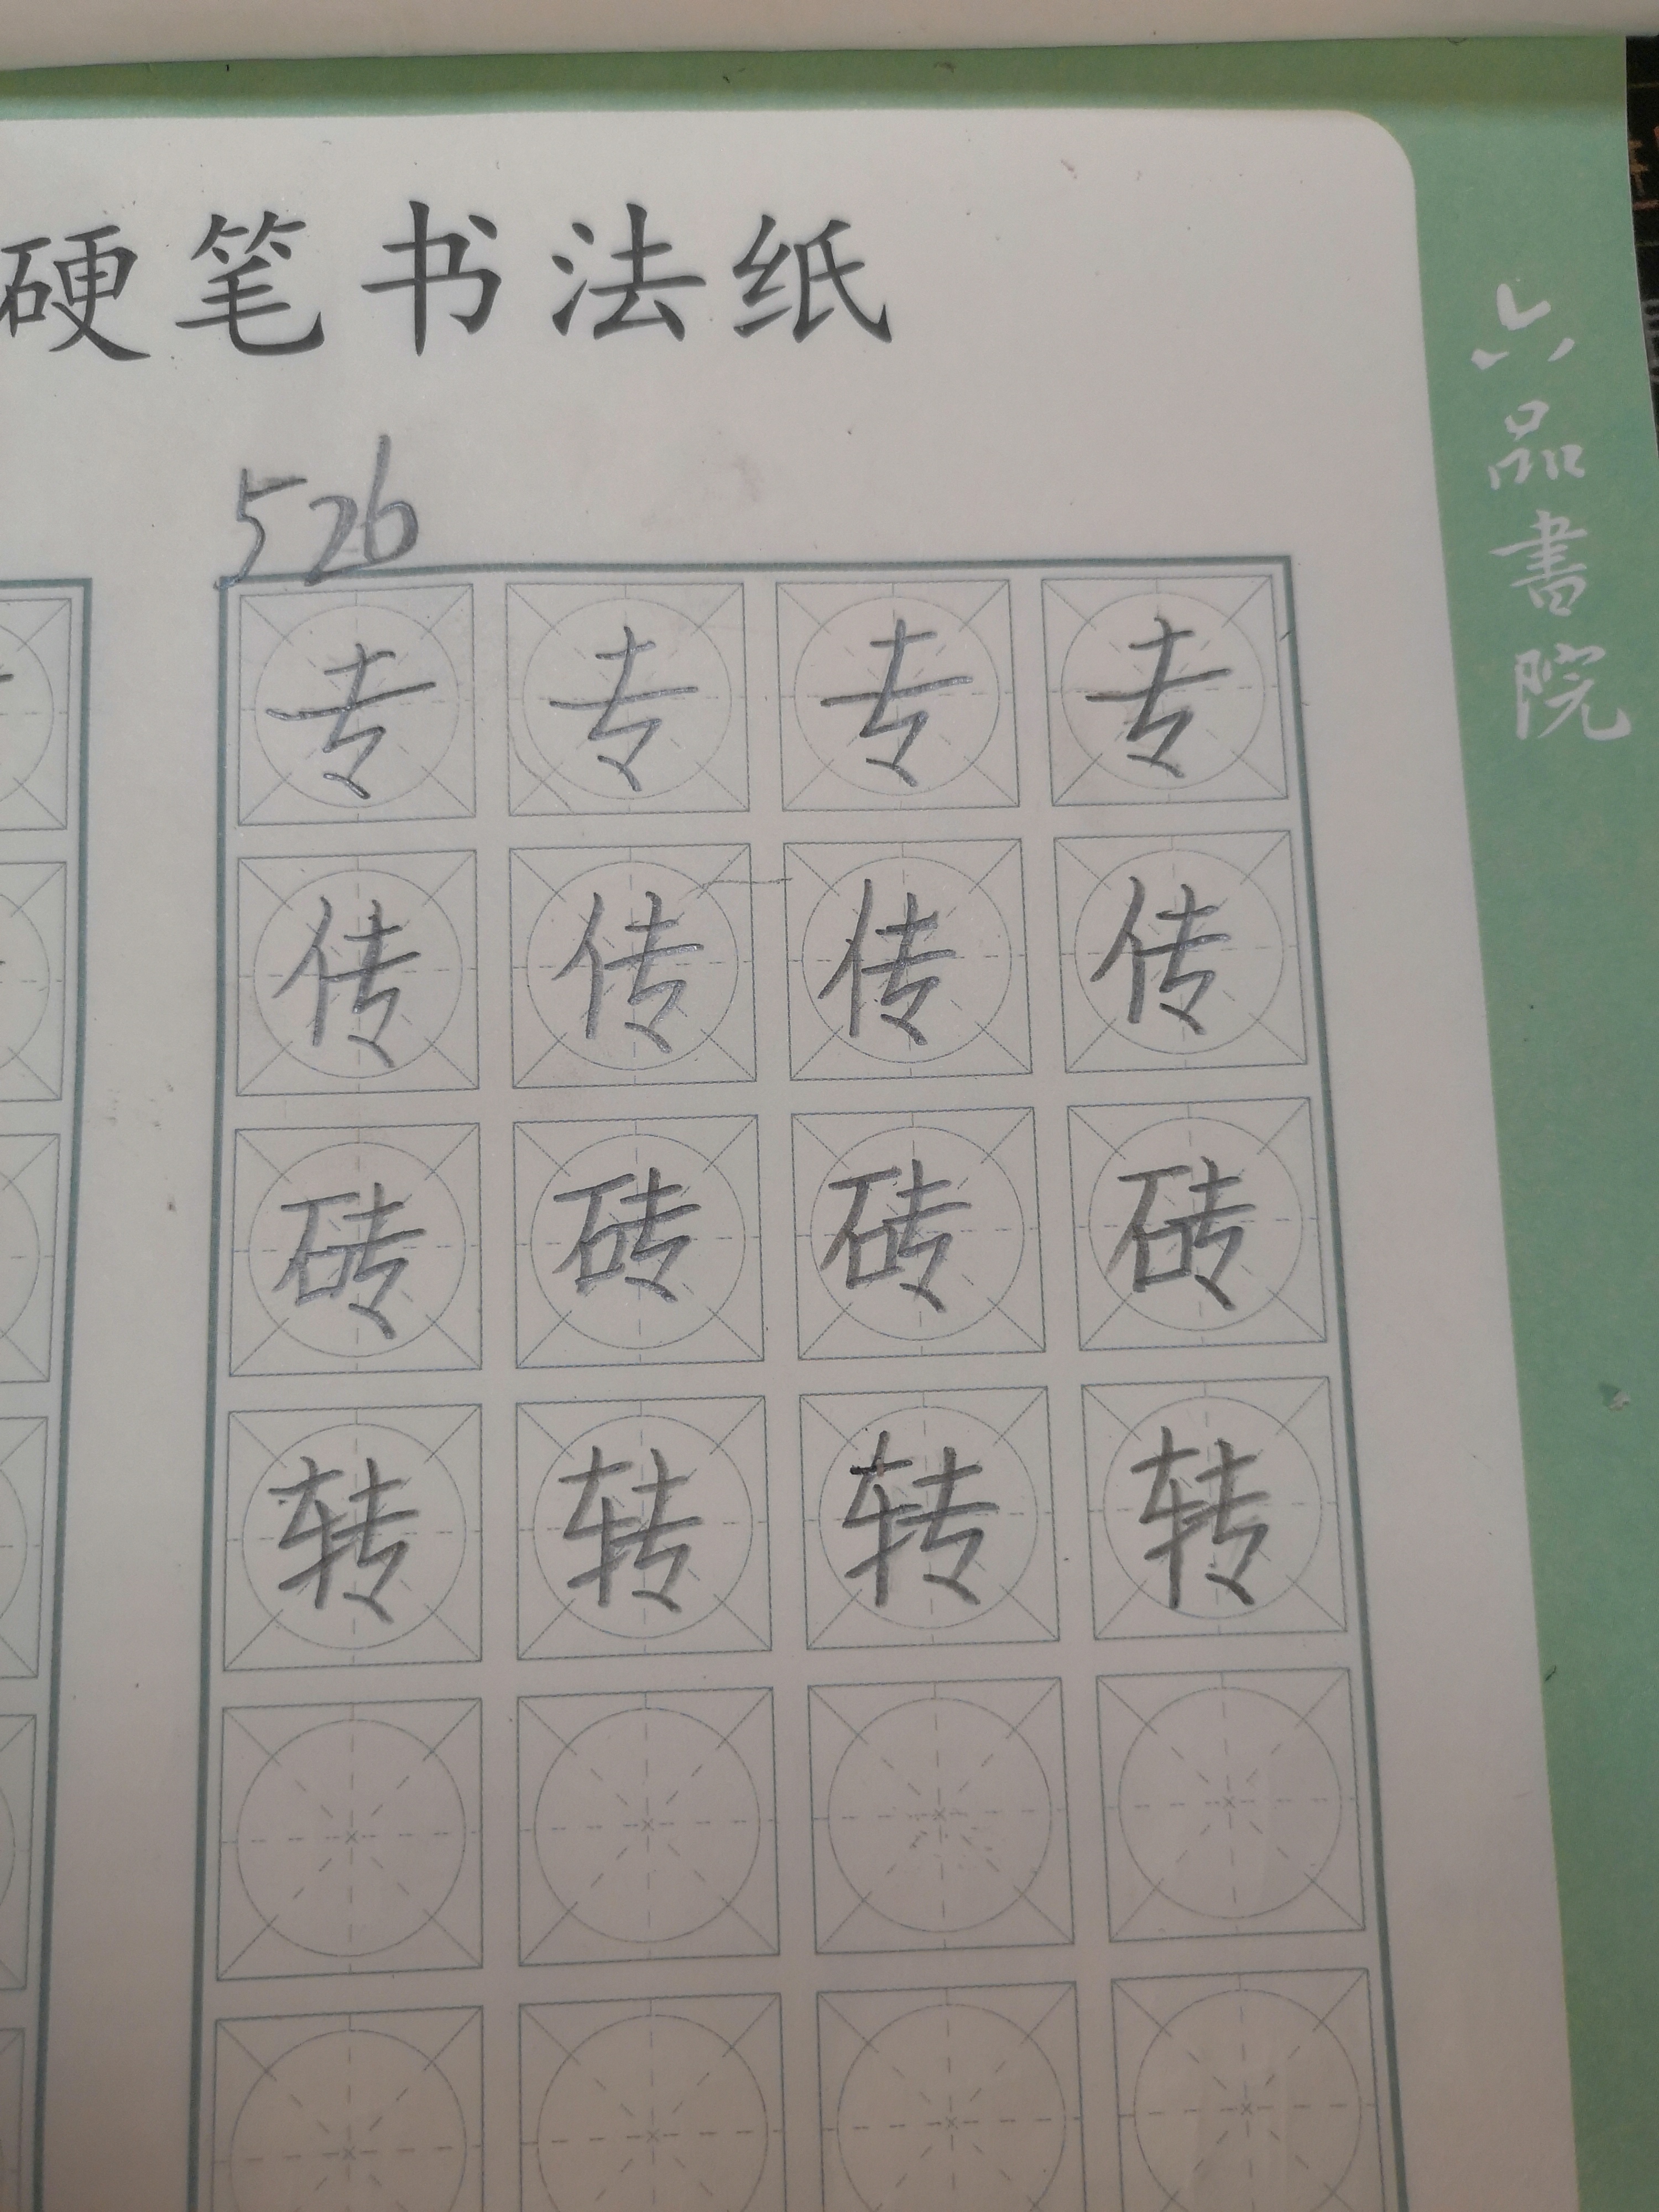 硬笔书法纸
526
专 专 专 专
传 传 传 传
砖 砖 砖 砖
转 转 转 转
六品書院